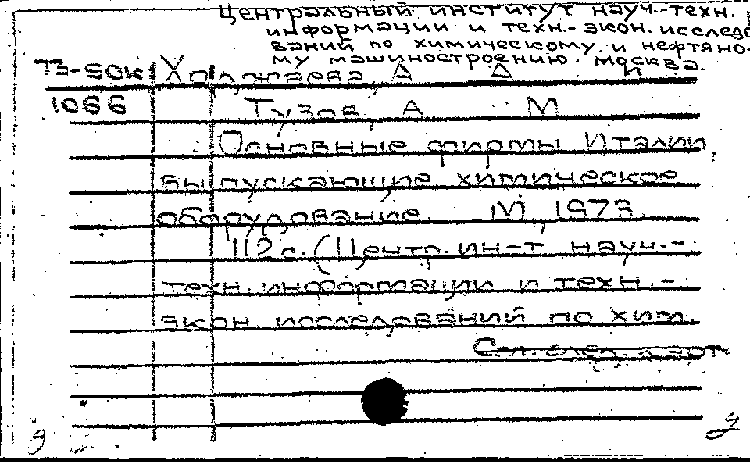 Центральный институт науч.-техн.
информации и техн.-экон. исследо
ваний по химическому и нефтяно-
му машиностроению. Москва
Тз-50к Холджаева, А А и
1066 Тузов, А М
Основные фирмы Италии,
выпускающие химическое
оборудование. М., 1973.
112 с. (Центр. ин-т науч.-
техн. информации и техн.-
экон. исследований по хим.
См. след. карт.